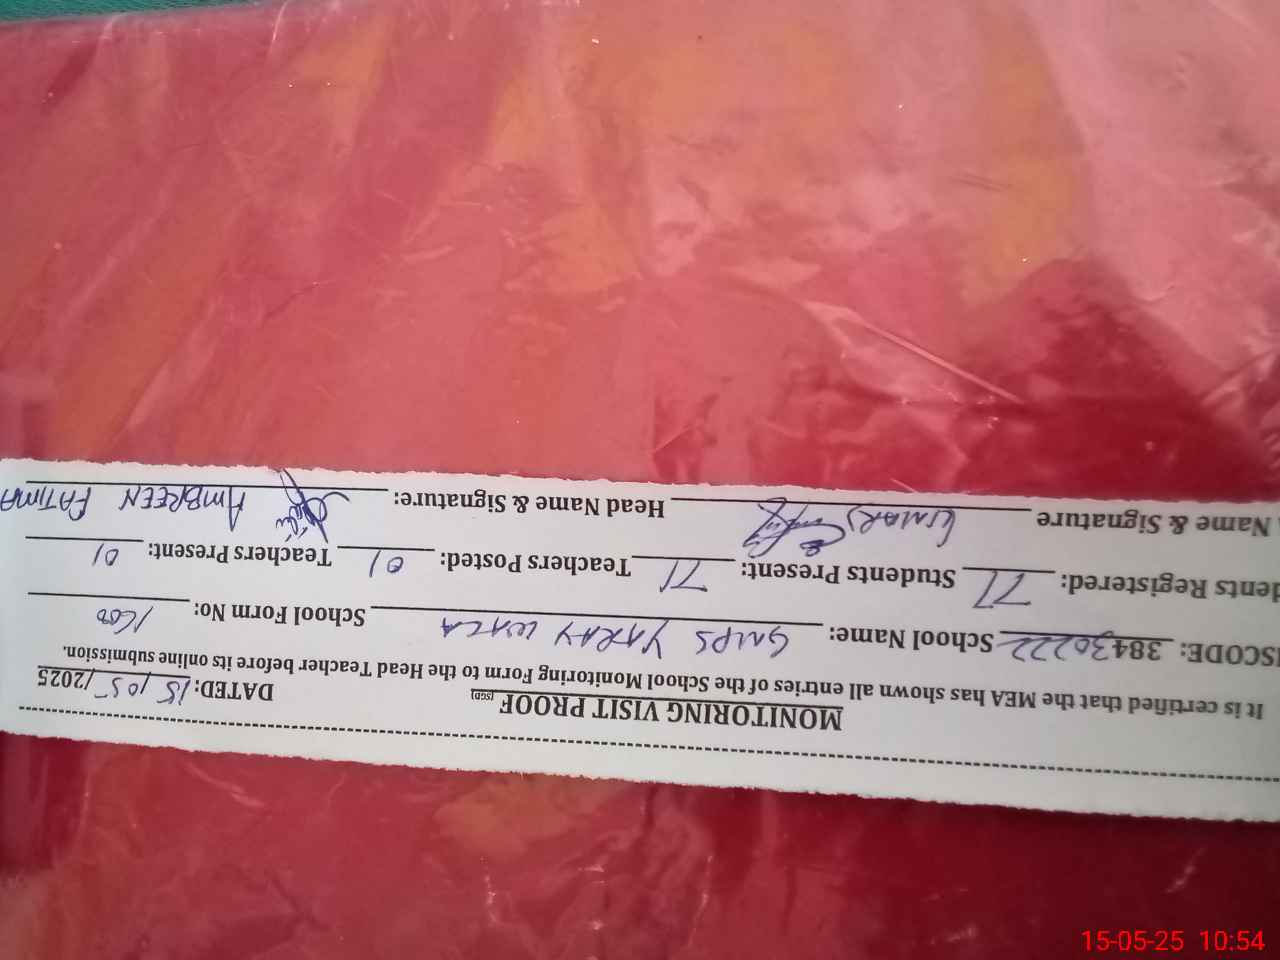 MONITORING VISIT PROOF [SGD] DATED: 15/05/2025
It is certified that the MEA has shown all entries of the School Monitoring Form to the Head Teacher before its online submission.
ISCODE: 38430222 School Name: GMPS YARAY WALA School Form No: 1600
dents Registered: 77 Students Present: 71 Teachers Posted: 01 Teachers Present: 01
Name & Signature UMAR Head Name & Signature: AMBREEN FATIMA
15-05-25 10:54